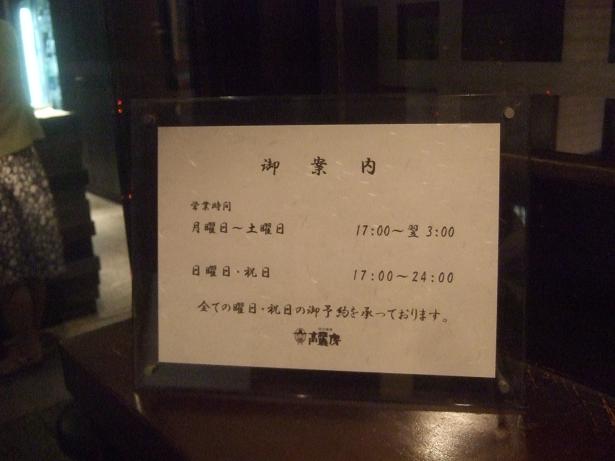 御案内
営業時間
月曜日～土曜日 17:00～翌 3:00
日曜日・祝日 17:00～24:00
全ての曜日・祝日の御予約を承っております。